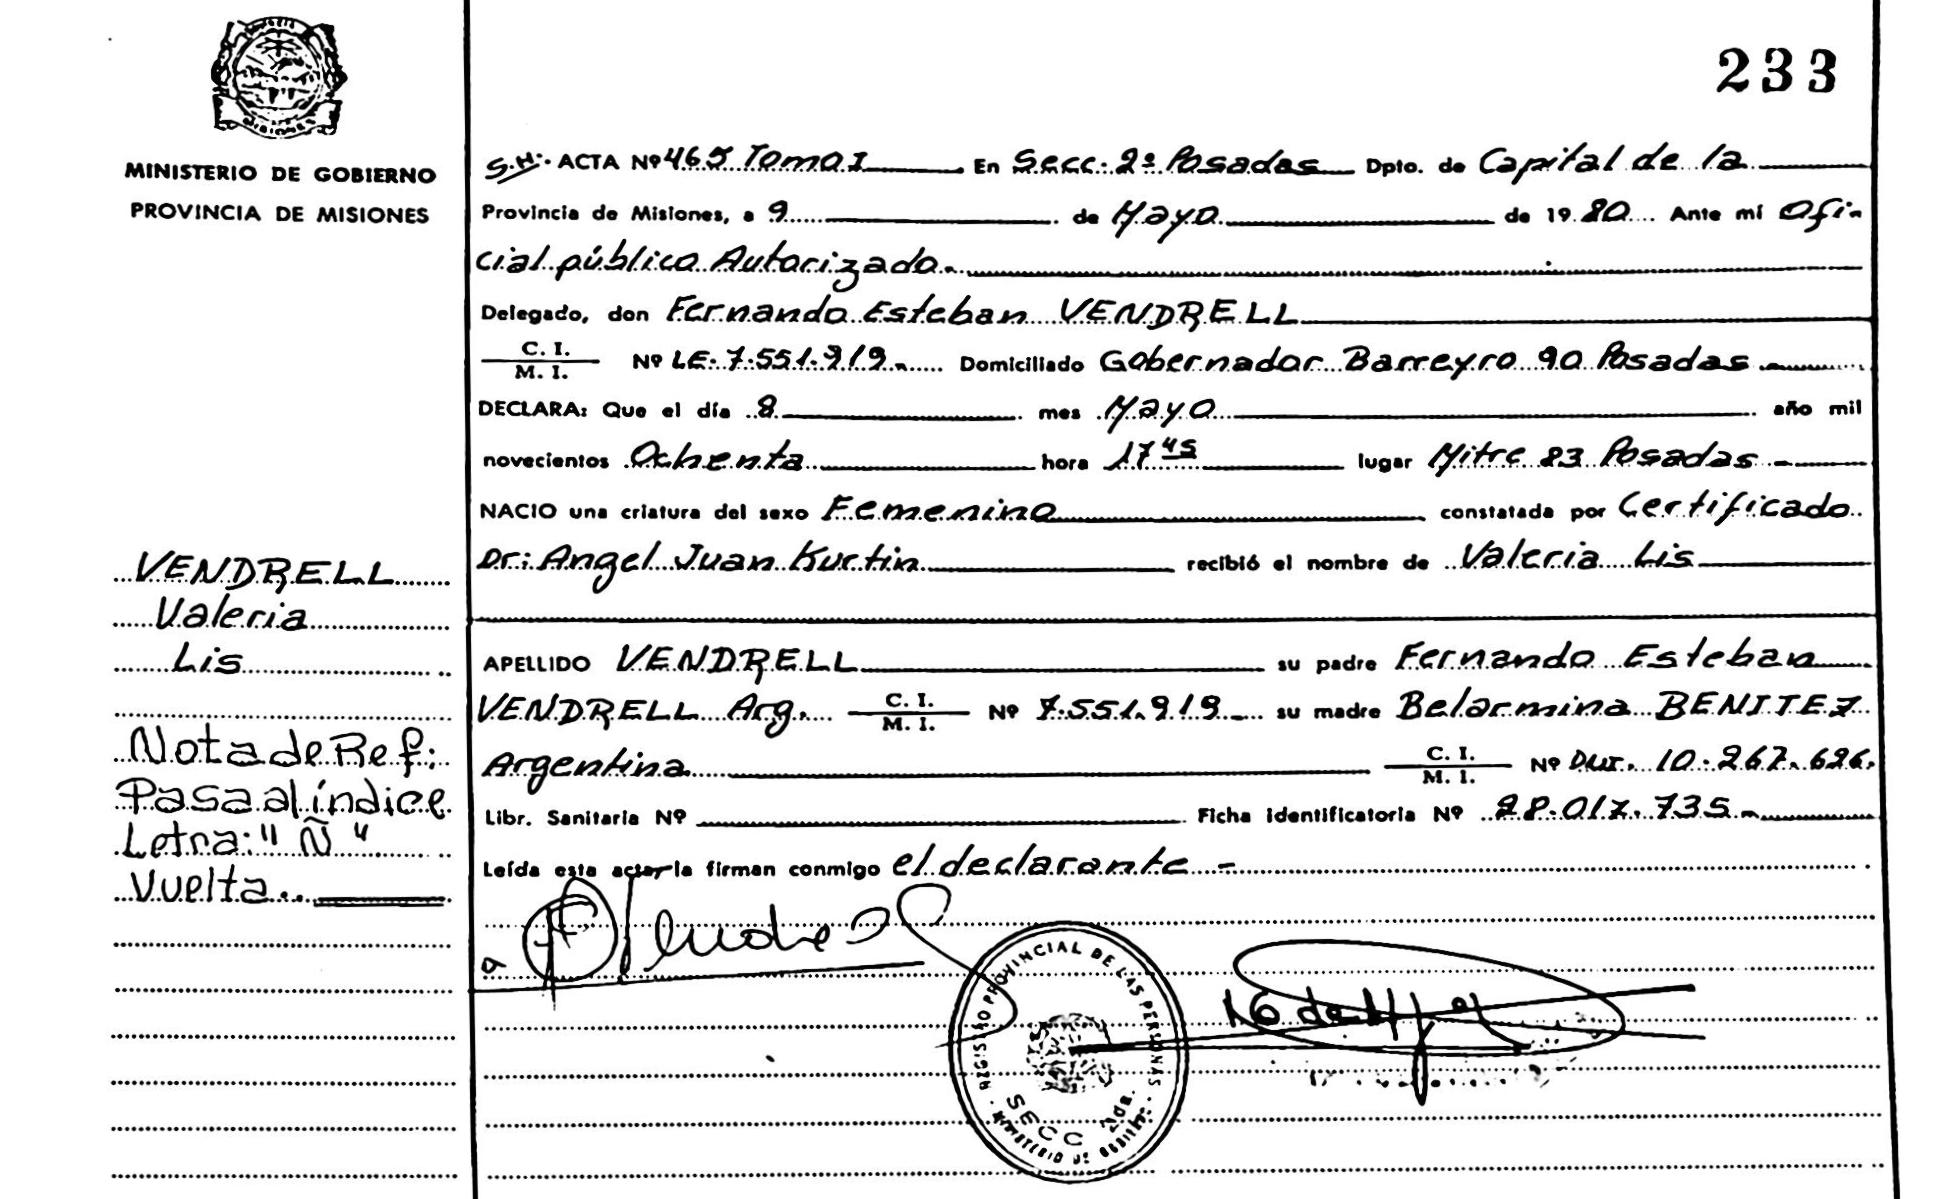 233
MISIONES
MINISTERIO DE GOBIERNO
PROVINCIA DE MISIONES
VENDRELL
Valeria
Lis
Nota de Ref:
Pasa al índice
Letra: "Ñ"
Vuelta..
S.H:. ACTA Nº 465 Tomo I En Secc. 2º Posadas Dpto. de Capital de la
Provincia de Misiones, a 9 de Mayo de 1980 Ante mí Ofi-
cial público Autorizado.
Delegado, don Fernando Esteban VENDRELL
C. I. / M. I. Nº LE. 7.551.919. Domiciliado Gobernador Barreyro 90 Posadas
DECLARA: Que el día 8 mes Mayo año mil
novecientos Ochenta hora 17 45 lugar Mitre 83 Posadas -
NACIO una criatura del sexo Femenino constatada por Certificado
Dr: Angel Juan Kurtin recibió el nombre de Valeria Lis
APELLIDO VENDRELL su padre Fernando Esteban
VENDRELL Arg. C. I. / M. I. Nº 7.551.919 su madre Belarmina BENITEZ
Argentina C. I. / M. I. Nº 10.267.626.
Libr. Sanitaria Nº Ficha identificatoria Nº 28.017.735.-
Leída esta acta la firman conmigo el declarante -
REGISTRO PROVINCIAL DE LAS PERSONAS
SECC 2da.
MINISTERIO DE GOBIERNO